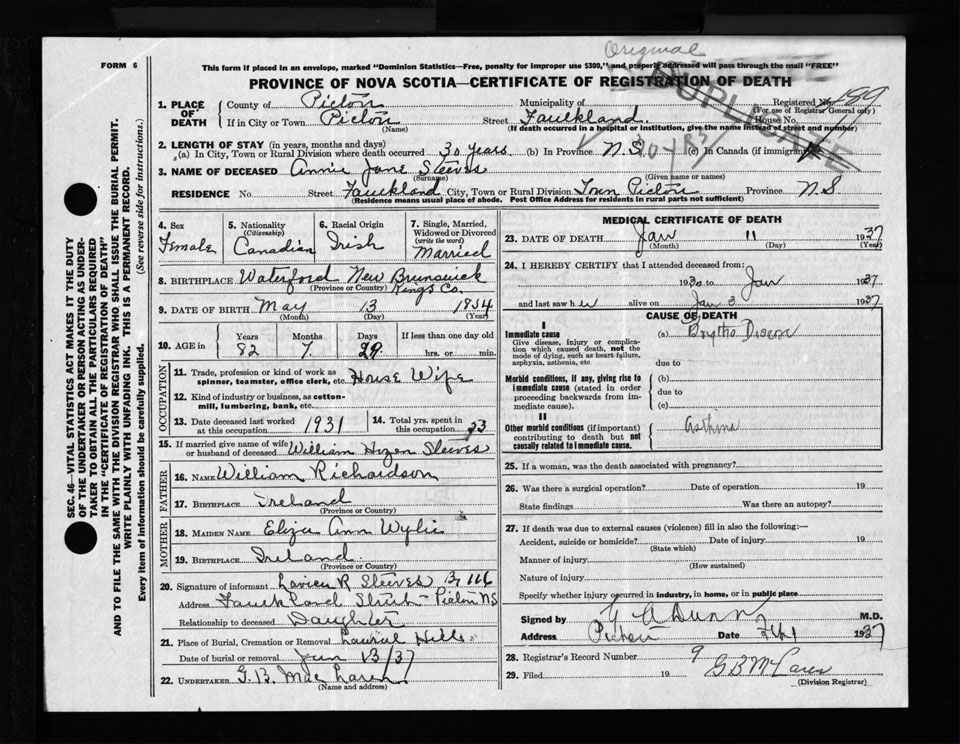 Original
FORM 6
This form if placed in an envelope, marked "Dominion Statistics—Free, penalty for improper use $300," and properly addressed will pass through the mail "FREE"
DUPLICATE
PROVINCE OF NOVA SCOTIA—CERTIFICATE OF REGISTRATION OF DEATH
SEC. 46—VITAL STATISTICS ACT MAKES IT THE DUTY
OF THE UNDERTAKER OR PERSON ACTING AS UNDER-
TAKER TO OBTAIN ALL THE PARTICULARS REQUIRED
IN THE "CERTIFICATE OF REGISTRATION OF DEATH"
AND TO FILE THE SAME WITH THE DIVISION REGISTRAR WHO SHALL ISSUE THE BURIAL PERMIT.
WRITE PLAINLY WITH UNFADING INK. THIS IS A PERMANENT RECORD.
Every item of information should be carefully supplied. (See reverse side for instructions.)
1. PLACE OF DEATH County of Pictou Municipality of Registered No. 199
(For use of Registrar General only)
If in City or Town Pictou Street Faulkland House No.
(Name) (If death occurred in a hospital or institution, give the name instead of street and number)
2. LENGTH OF STAY (in years, months and days)
(a) In City, Town or Rural Division where death occurred 30 years (b) In Province N.S (c) In Canada (if immigrant)
3. NAME OF DECEASED Annie Jane Steeves
(Surname) (Given name or names)
RESIDENCE No. Street Faulkland City, Town or Rural Division Town Pictou Province N.S
(Residence means usual place of abode. Post Office Address for residents in rural parts not sufficient)
4. Sex Female
5. Nationality (Citizenship) Canadian
6. Racial Origin Irish
7. Single, Married, Widowed or Divorced (write the word) Married
8. BIRTHPLACE Waterford New Brunswick
(Province or Country) Kings Co.
9. DATE OF BIRTH May 13 1854
(Month) (Day) (Year)
10. AGE in Years Months Days If less than one day old
82 7 29 hrs. or min.
OCCUPATION
11. Trade, profession or kind of work as spinner, teamster, office clerk, etc. House Wife
12. Kind of industry or business, as cotton-mill, lumbering, bank, etc.
13. Date deceased last worked at this occupation 1931
14. Total yrs. spent in this occupation 53
15. If married give name of wife or husband of deceased William Steeves
FATHER
16. NAME William Richardson
17. BIRTHPLACE Ireland
(Province or Country)
MOTHER
18. MAIDEN NAME Eliza Ann Wylie
19. BIRTHPLACE Ireland
(Province or Country)
20. Signature of informant R Steeves
Address Faulkland Street - Pictou NS
Relationship to deceased Daughter
21. Place of Burial, Cremation or Removal Laurel Hill
Date of burial or removal Jan 13/37
22. UNDERTAKER G. B. MacLaren
(Name and address)
MEDICAL CERTIFICATE OF DEATH
23. DATE OF DEATH Jan 11 1937
(Month) (Day) (Year)
24. I HEREBY CERTIFY that I attended deceased from:
1930 to Jan 1937
and last saw her alive on Jan 3 1937
CAUSE OF DEATH
I
Immediate cause
Give disease, injury or complication which caused death, not the mode of dying, such as heart failure, asphyxia, asthenia, etc
(a) Disease
due to
Morbid conditions, if any, giving rise to immediate cause (stated in order proceeding backwards from immediate cause).
(b)
due to
(c)
II
Other morbid conditions (if important) contributing to death but not causally related to immediate cause.
Asthma
25. If a woman, was the death associated with pregnancy?
26. Was there a surgical operation? Date of operation 19
State findings Was there an autopsy?
27. If death was due to external causes (violence) fill in also the following:—
Accident, suicide or homicide? Date of injury 19
(State which)
Manner of injury
(How sustained)
Nature of injury
Specify whether injury occurred in industry, in home, or in public place
Signed by G A Dunn M.D.
Address Pictou Date Feb 1 1937
28. Registrar's Record Number 9
29. Filed 19 G B McLaren
(Division Registrar)